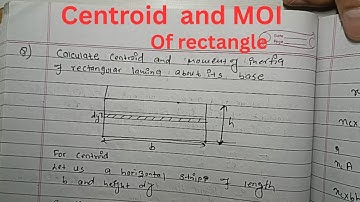 Centroid and MOI
Of rectangle
Q) Calculate centroid and moment of inertia
of rectangular lamina about its base
dy
h
b
For centroid
Let us a horizontal strips of length
b and height dy